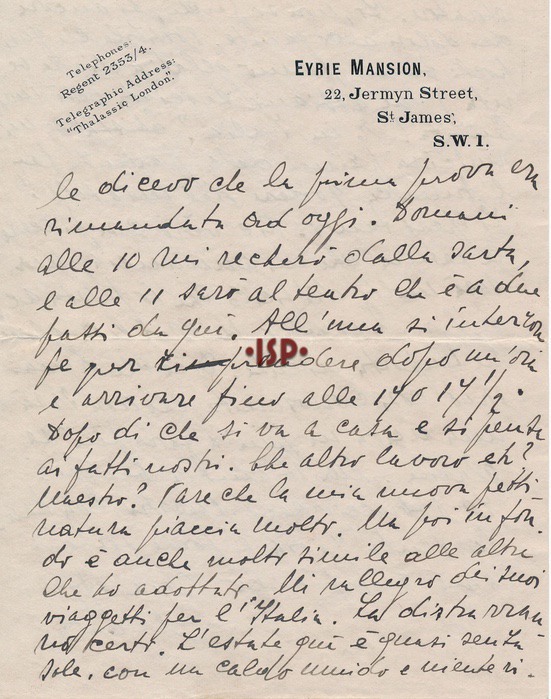 Telephones:
Regent 2353/4.
Telegraphic Address:
"Thalassic London".
EYRIE MANSION,
22, Jermyn Street,
St. James',
S.W.1.
le dicevo che la prima prova era
rimandata ad oggi. Domani
alle 10 mi recherò dalla sarta,
e alle 11 sarò al teatro che è a due
passi da qui. All'una si interrom
pe per prendere dopo un'ora
e arrivare fino alle 14 o 14 1/2.
Dopo di che si va a casa e si pensa
ai fatti nostri. Che altro lavoro eh?
Maestro? Pare che la mia nuova petti
natura piaccia molto. Ma poi in fon
do è anche molto simile alle altre
che ho adottato. Mi rallegro dei suoi
viaggetti per l'Italia. La distrarran
no certo. L'estate qui è quasi senza
sole, con un caldo umido e niente ri-
ISP